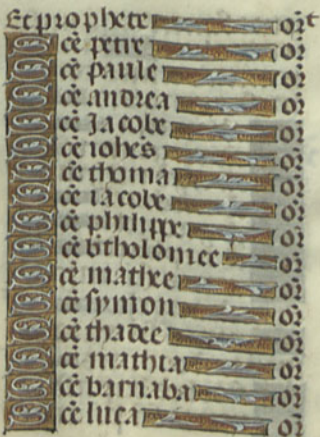 Et prophete or̄t
S cē petre or̄
S cē paule or̄
S cē andrea or̄
S cē Jacobe or̄
S cē iohēs or̄
S cē thoma or̄
S cē iacobe or̄
S cē philippe or̄
S cē b̄tholomee or̄
S cē mathee or̄
S cē symon or̄
S cē thadee or̄
S cē mathia or̄
S cē barnaba or̄
S cē luca or̄